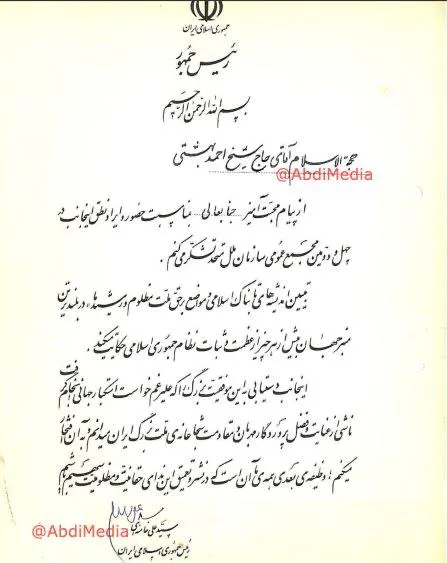 جمهوری اسلامی ایران
رئیس جمهور
بسم الله الرحمن الرحیم
حجة الاسلام آقای حاج شیخ احمد بهشتی
@AbdiMedia
از پیام محبت آمیز جنابعالی بمناسبت حضور و ایراد نطق اینجانب در
چهل و دومین مجمع عمومی سازمان ملل متحد تشکر می کنم .
تبیین اندیشه های تابناک اسلامی و مواضع برحق ملت مظلوم و رشید ما، در بلندترین
منبر جهان بیش از هر چیز از عظمت و ثبات نظام جمهوری اسلامی حکایت میکند .
اینجانب دستیابی به این موفقیت بزرگ را که علیرغم خواست استکبار جهانی انجام گرفت
ناشی از عنایت و فضل پروردگار مهربان و مقاومت شجاعانه ی ملت بزرگ ایران میدانم و به آن افتخار
میکنم ، وظیفه ی بعدی همه ی ما آن است که در نشر و تعمیق این ندای حقانیت و مظلومیت سهیم باشیم
@AbdiMedia
سید علی خامنه ای
رئیس جمهوری اسلامی ایران